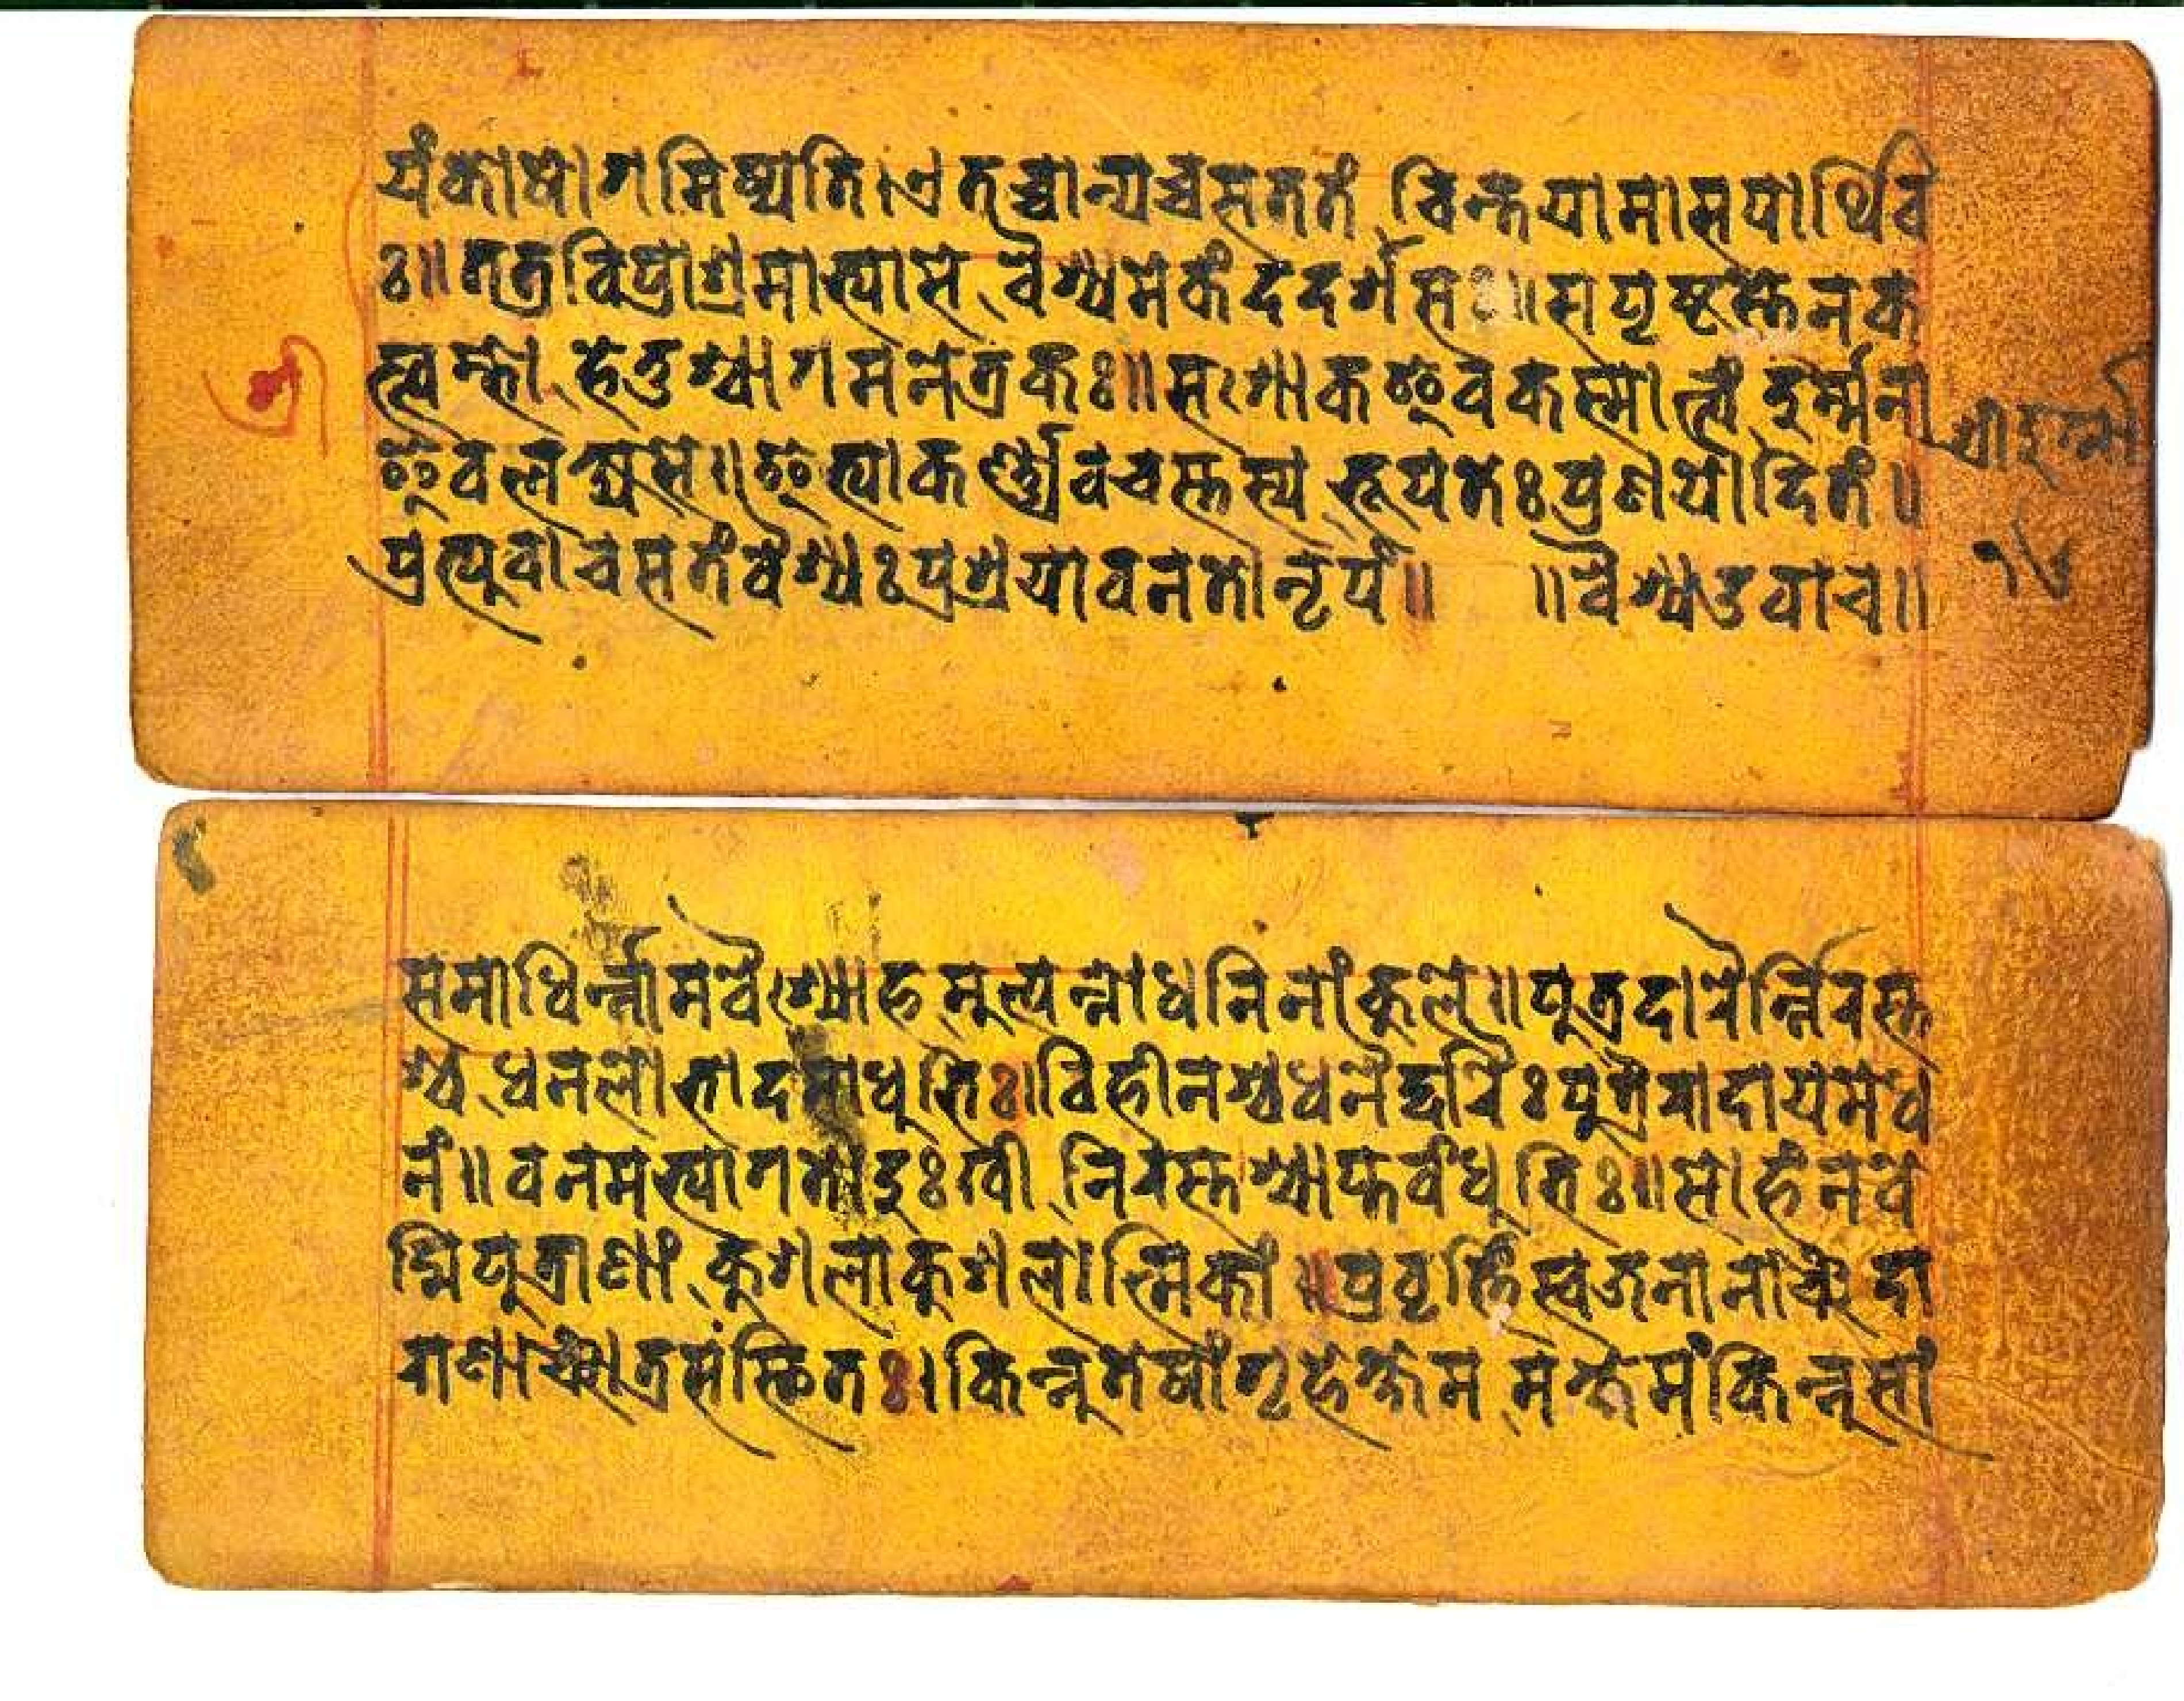 यं कोषो गमिष्यति । एतच्चान्यच्च सततं चिन्तयामास पार्थिव
ः ॥ तत्र विप्राश्रमाभ्यासे वैश्यमेकं ददर्श सः ॥ स पृष्टस्तेन क
स्त्वम्भो हेतुश्चागमनेत्र कः ॥ सशोक इव कस्मात्त्वं दुर्म्मना
इव लक्ष्यसे ॥ इत्याकर्ण्य वचस्तस्य भूपतेः प्रणयोदितं ॥
प्रत्युवाच स तं वैश्यः प्रश्रयावनतो नृपं ॥ ॥ वैश्य उवाच ॥
श्रीदुर्गा
१४
समाधिर्न्नाम वैश्योहमुत्पन्नो धनिनां कुले ॥ पुत्रदारैर्न्निरस्त
श्च धनलोभादसाधुभिः ॥ विहीनश्च धनैर्द्दारैः पुत्रैरादाय मे ध
नं ॥ वनमभ्यागतो दुःखी निरस्तश्चाप्तबंधुभिः ॥ सोहं न वे
द्मि पुत्राणां कुशलाकुशलात्मिकां ॥ प्रवृत्तिं स्वजनानाञ्च दा
राणाञ्चात्र संस्थितः । किन्नु तेषां गृहे क्षेममक्षेमं किन्नु सां